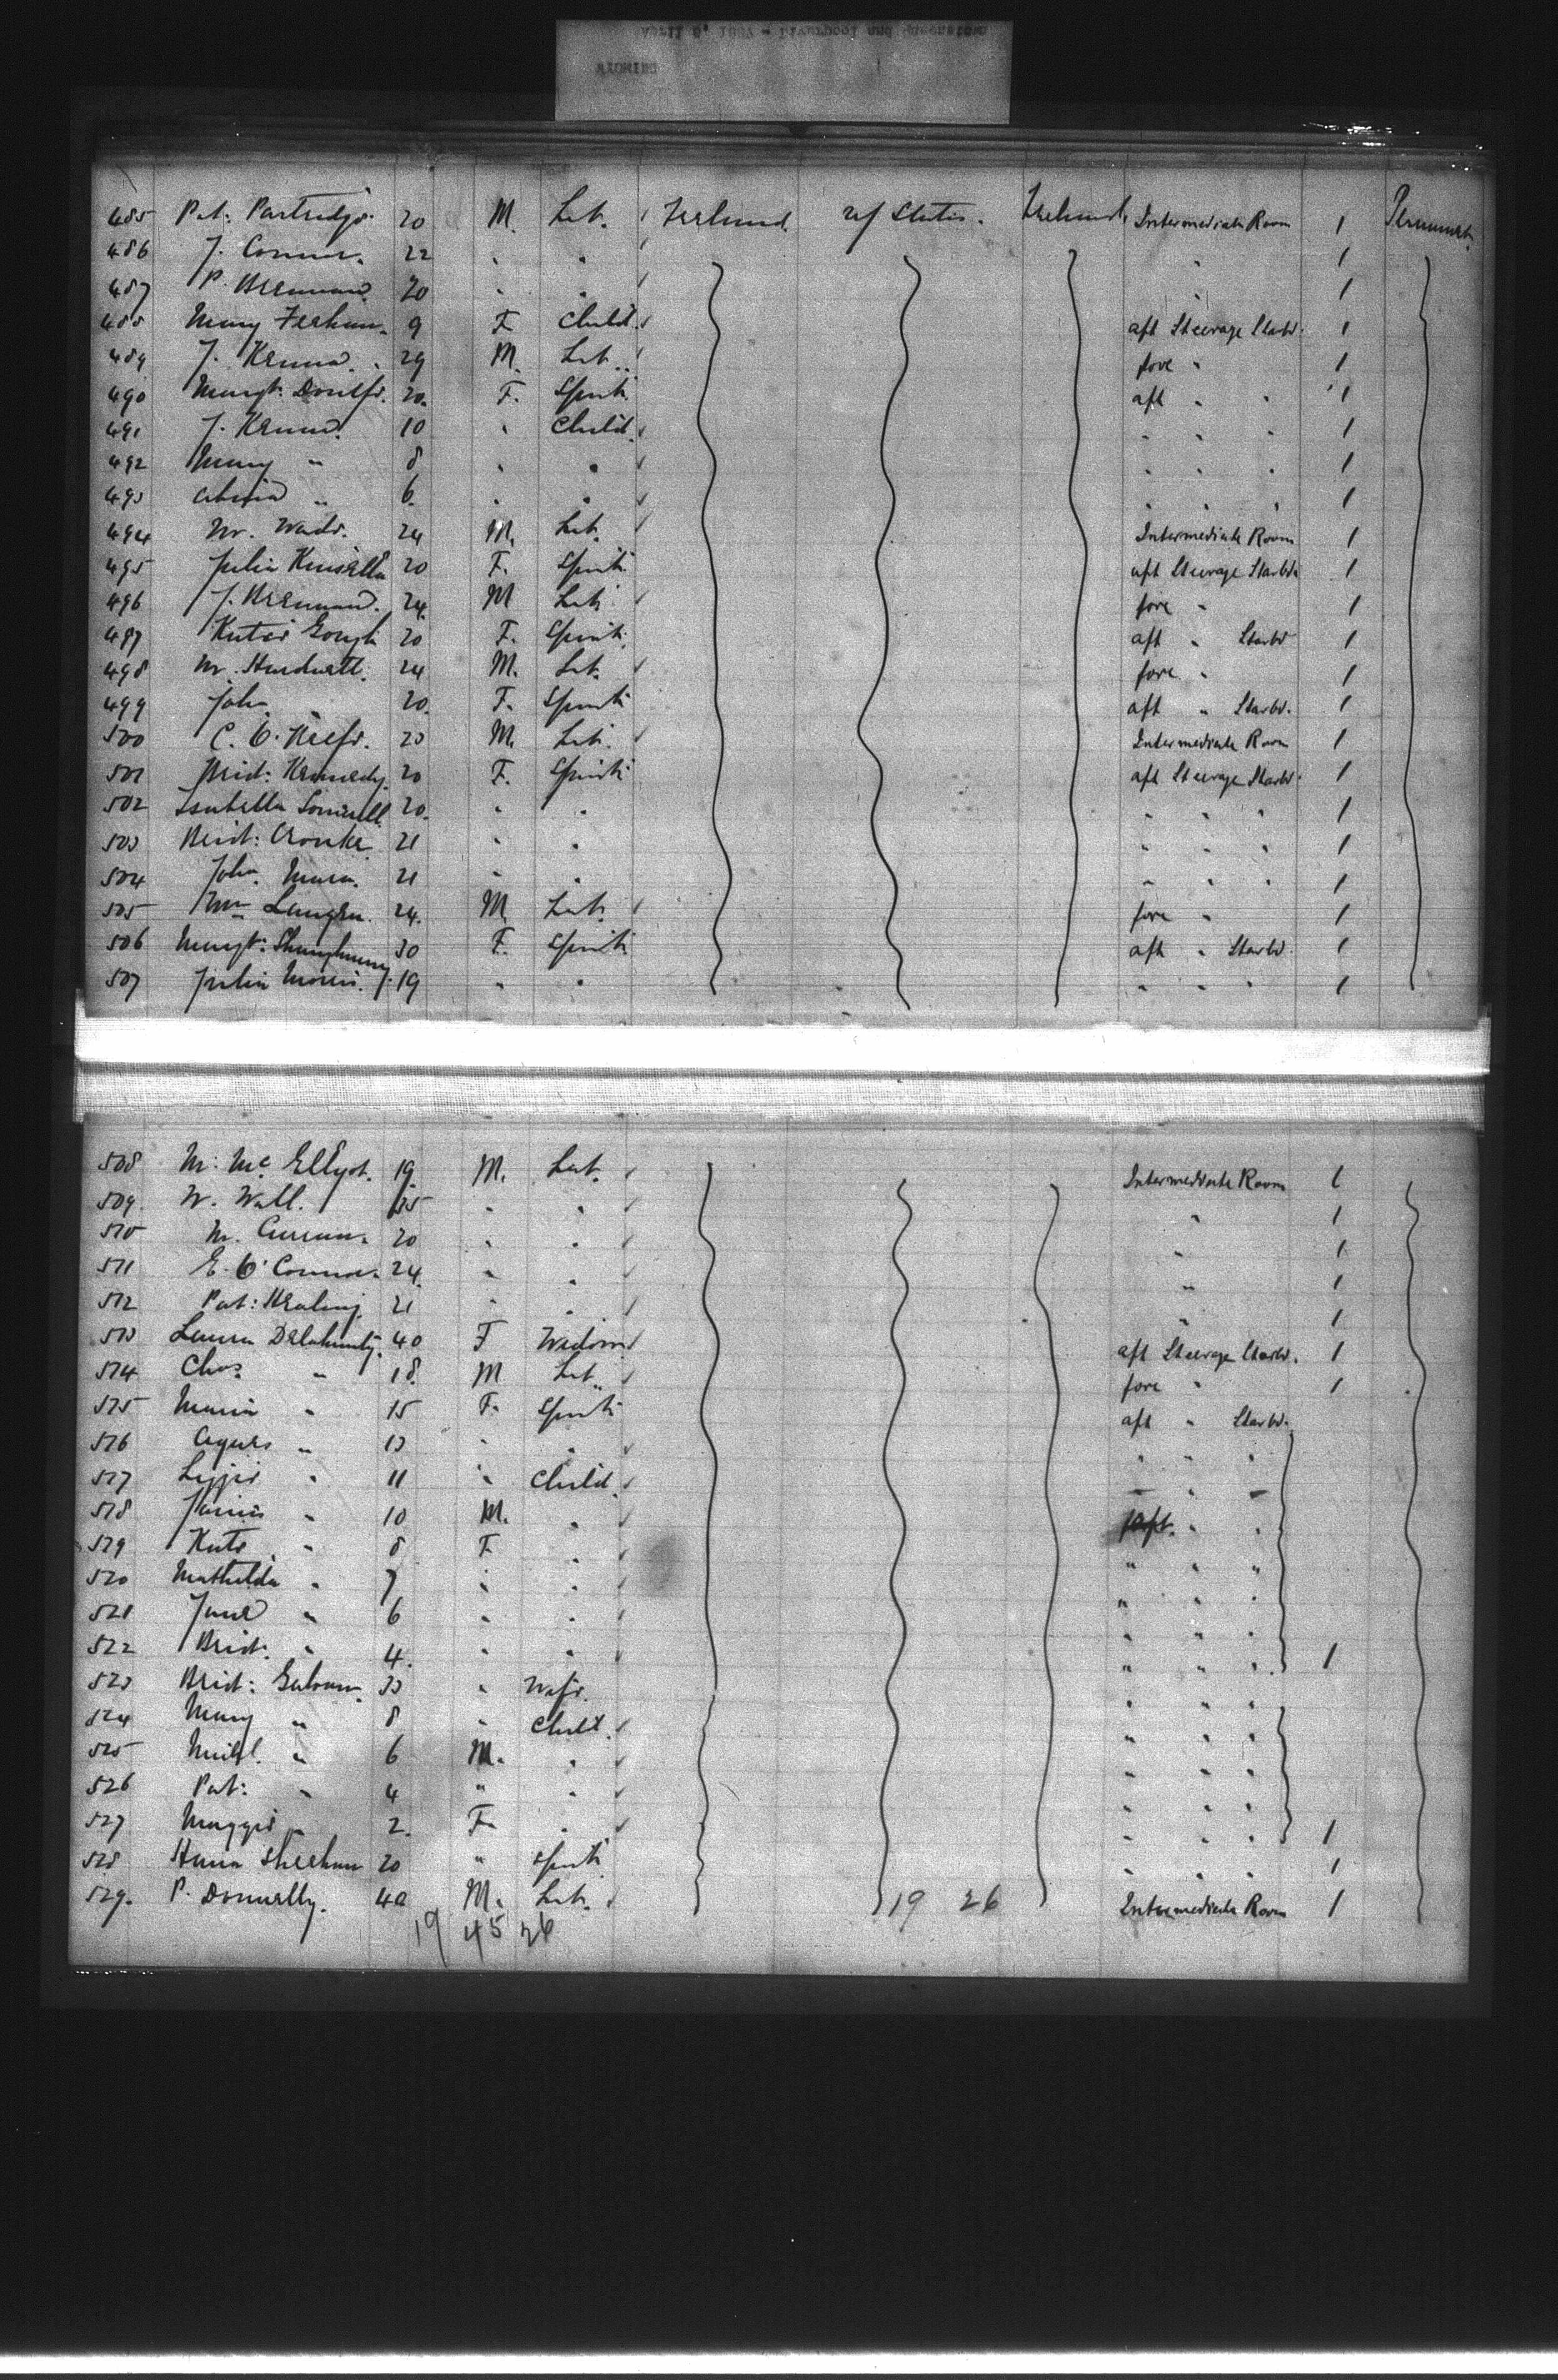 April 6, 1887 - Liverpool and Queenstown
WYOMING
485 Pat: Partridge. 20 M. Lab. Ireland. U/ States. Ireland. Intermediate Room 1 Permanent.
486 J. Connor. 22 " " " 1
487 P. Brennan. 20 " " " 1
488 Mary Feehan. 9 F Child. aft Steerage Starbd. 1
489 J. Kenna. 29 M. Lab. fore " 1
490 Margt: 20. F. Spinst. aft " " 1
491 J. Kenna. 10 " Child. " " " 1
492 Mary " 8 " " " " " 1
493 " 6. " " " " " 1
494 M. Wade. 24 M. Lab. Intermediate Room 1
495 Julia Kinsella 20 F. Spinst. aft Steerage Starbd. 1
496 J. Brennan. 24. M Lab. fore " 1
497 Katie Gough 20 F. Spinst. aft " Starbd 1
498 M. 24 M. Lab. fore " 1
499 Joha. " 20. F. Spinst. aft " Starbd. 1
500 C. O'Keefe. 23 M. Lab. Intermediate Room 1
501 Brid: Kennedy. 20 F. Spinst. aft Steerage Starbd. 1
502 Isabella 20. " " " " " 1
503 Brid: Croake 21 " " " " " 1
504 Joha. Mara. 21 " " " " " 1
505 Wm 24. M. Lab. fore " 1
506 Margt: Shaughnessy. 30 F. Spinst. aft " Starbd. 1
507 Julia Morris. 19 " " " " " 1
508 M. Mc Ellgot. 19. M. Lab. Intermediate Room 1
509. W. Wall. 35 " " " 1
510 M. Curran. 20 " " " 1
511 E. O'Connor. 24. " " " 1
512 Pat: Healing 21 " " " 1
513 Laura Delahunty. 40 F Widow aft Steerage Starbd. 1
514 Chas " 18. M Lab. fore " 1
515 Maria " 15 F. Spinst. aft " Starbd.
516 Agnes " 13 " " " " "
517 Lizzie " 11 " Child. " " "
518 James " 10 M. " aft. " "
519 Kate " 8 F " " " "
520 Mathilda " 7 " " " " "
521 Jane " 6 " " " " "
522 Brid. " 4. " " " " " 1
523 Brid: 33 " Wife. " " "
524 Mary " 8 " Child. " " "
525 Michl. " 6 M. " " " "
526 Pat: " 4 " " " " "
527 Maggie " 2. F " " " " 1
528 Hana Sheehan 20 " Spinst. " " " 1
529. P. Donnelly. 40 M. Lab. 19 26 Intermediate Room 1
19 45 26